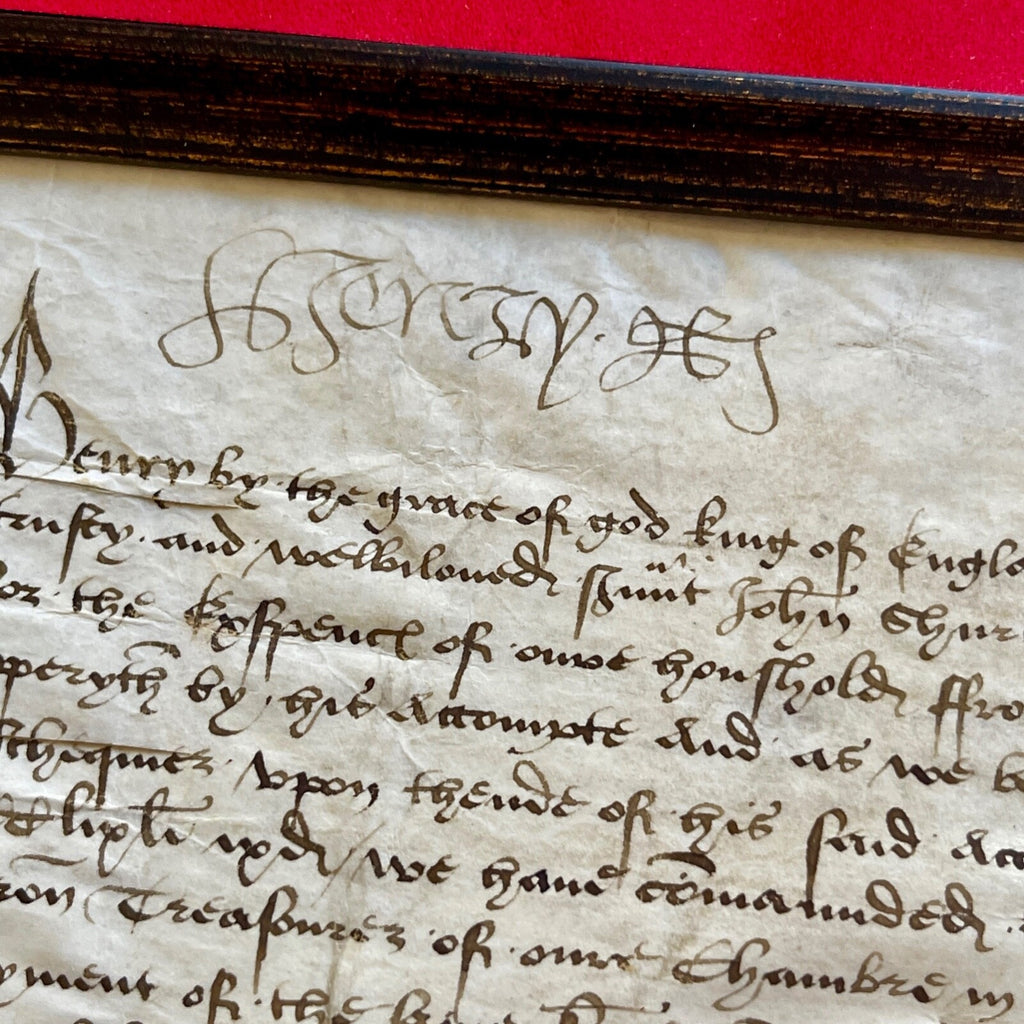 Henry R
Henry by the grace of god king of Engla
trusty and welbiloued John Shur
for the Exspences of oure houshold ffro
pperyth by his accompte And as we b
Eschequier vpon thende of his said acc
we haue comaunded
Treasourer of oure Chambre in
yment of the